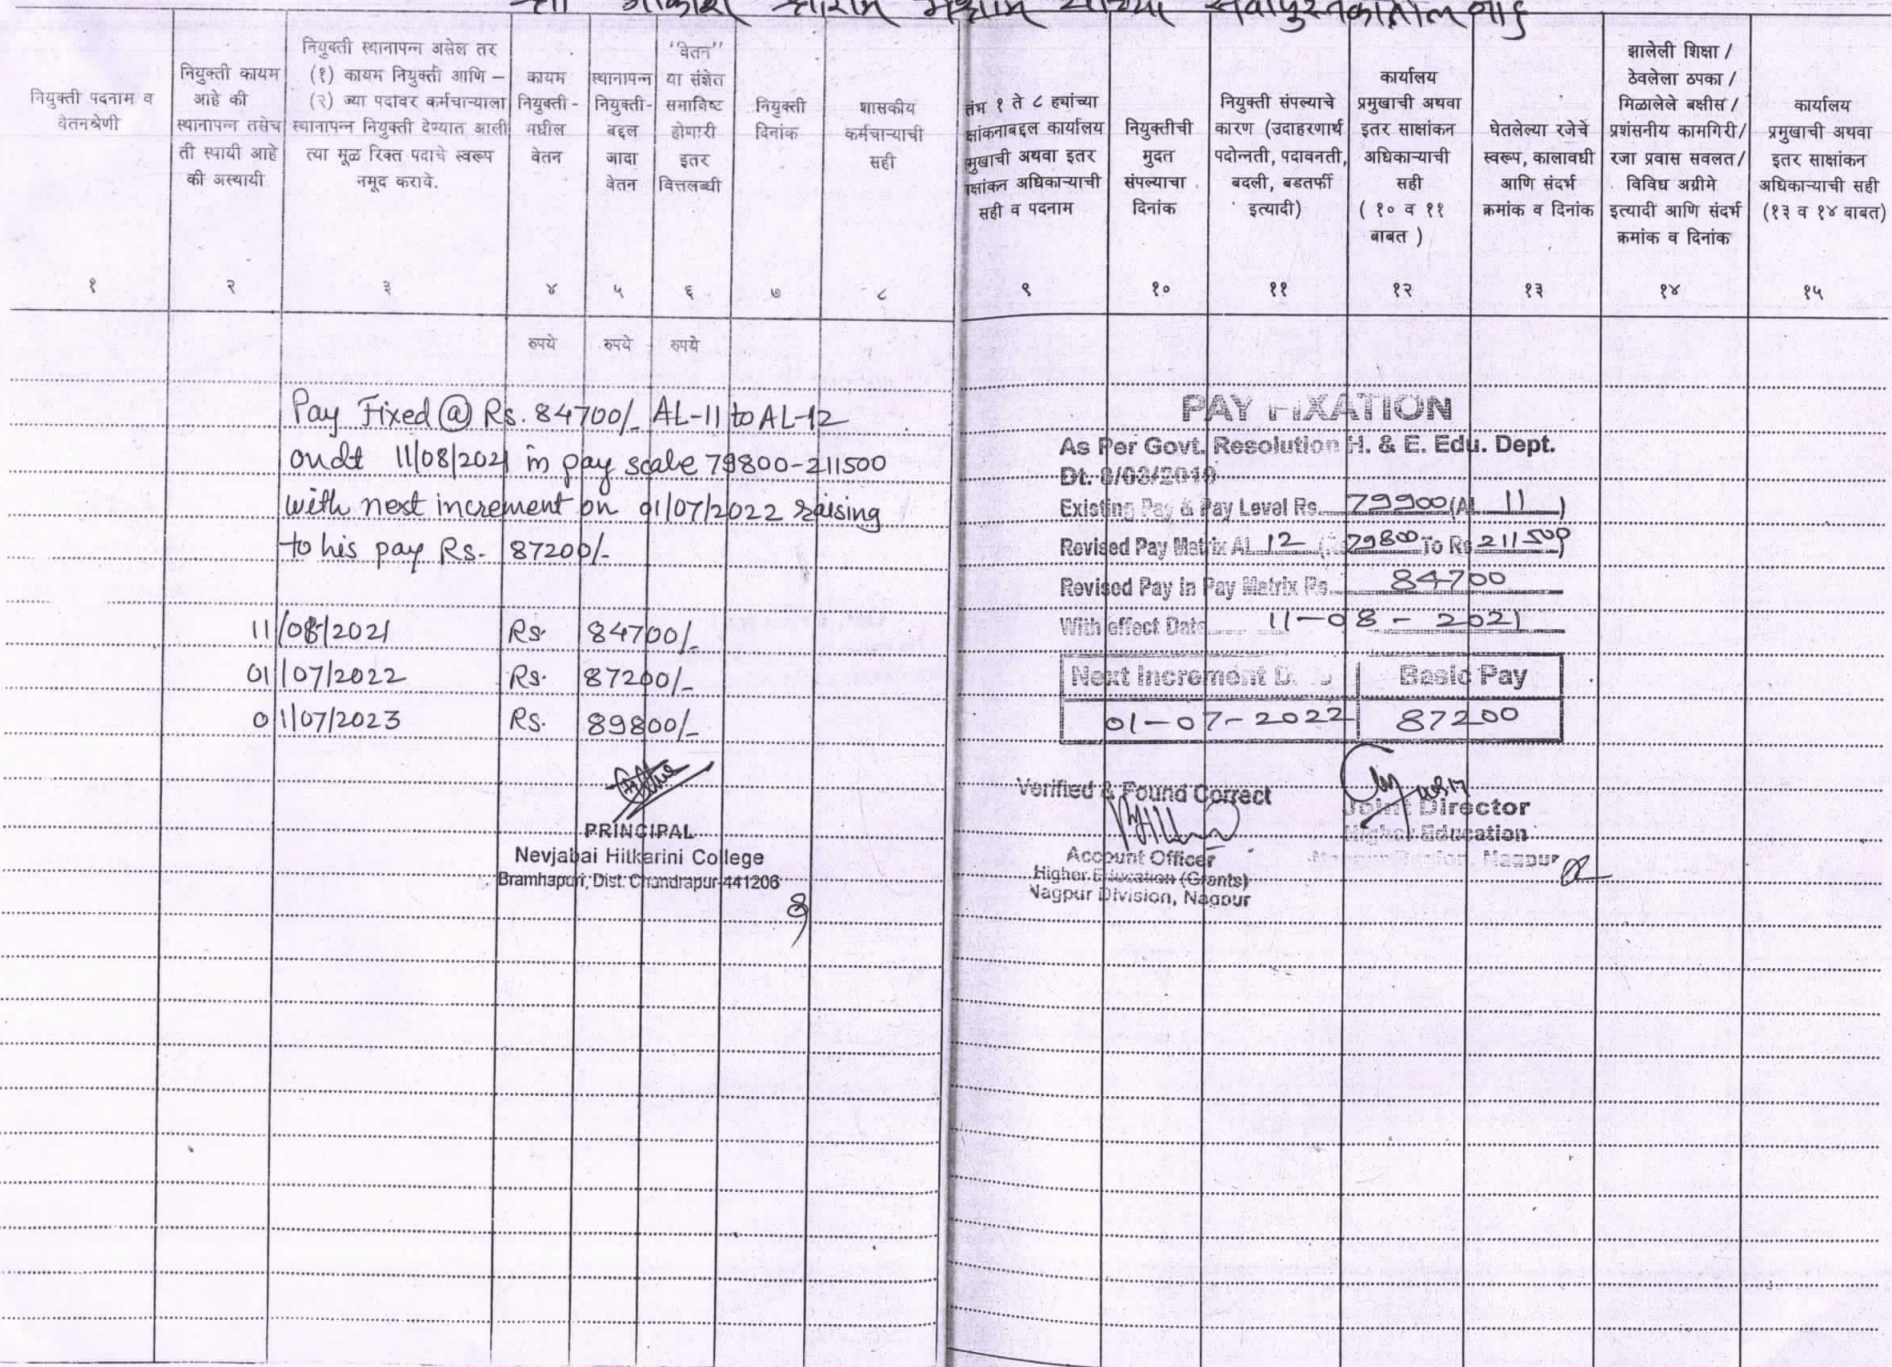 नियुक्ती पदनाम व
वेतनश्रेणी
नियुक्ती कायम
आहे की
स्थानापन्न तसेच
ती स्थायी आहे
की अस्थायी
नियुक्ती स्थानापन्न असेल तर
(१) कायम नियुक्ती आणि –
(२) ज्या पदावर कर्मचाऱ्याला
स्थानापन्न नियुक्ती देण्यात आली
त्या मूळ रिक्त पदाचे स्वरूप
नमूद करावे.
कायम
नियुक्ती-
मधील
वेतन
स्थानापन्न
नियुक्ती-
बद्दल
जादा
वेतन
"वेतन"
या संज्ञेत
समाविष्ट
होणारी
इतर
वित्तलब्धी
नियुक्ती
दिनांक
शासकीय
कर्मचाऱ्याची
सही
तंभ १ ते ८ ह्यांच्या
क्षांकनाबद्दल कार्यालय
मुखाची अथवा इतर
क्षांकन अधिकाऱ्याची
सही व पदनाम
नियुक्तीची
मुदत
संपल्याचा
दिनांक
नियुक्ती संपल्याचे
कारण (उदाहरणार्थ
पदोन्नती, पदावनती,
बदली, बडतर्फी
इत्यादी)
कार्यालय
प्रमुखाची अथवा
इतर साक्षांकन
अधिकाऱ्याची
सही
( १० व ११
बाबत )
घेतलेल्या रजेचे
स्वरूप, कालावधी
आणि संदर्भ
क्रमांक व दिनांक
झालेली शिक्षा /
ठेवलेला ठपका /
मिळालेले बक्षीस /
प्रशंसनीय कामगिरी/
रजा प्रवास सवलत/
विविध अग्रीमे
इत्यादी आणि संदर्भ
क्रमांक व दिनांक
कार्यालय
प्रमुखाची अथवा
इतर साक्षांकन
अधिकाऱ्याची सही
(१३ व १४ बाबत)
१ २ ३ ४ ५ ६ ७ ८ ९ १० ११ १२ १३ १४ १५
रुपये रुपये रुपये
Pay Fixed @ Rs. 84700/- AL-11 to AL-12
ondt 11/08/2021 in pay scale 79800-211500
with next increment on 01/07/2022 raising
to his pay Rs. 87200/-
11/08/2021 Rs. 84700/-
01/07/2022 Rs. 87200/-
01/07/2023 Rs. 89800/-
PRINCIPAL
Nevjabai Hitkarini College
Bramhapuri, Dist. Chandrapur-441206
PAY FIXATION
As Per Govt. Resolution H. & E. Edu. Dept.
Dt. 8/03/2019
Existing Pay & Pay Level Rs. 79900 (AL 11 )
Revised Pay Matrix AL 12 (Rs 79800 To Rs 211500)
Revised Pay in Pay Matrix Rs. 84700
With effect Date 11-08-2021
Next Increment Basic Pay
01-07-2022 87200
Verified & Found Correct
Account Officer
Higher Education (Grants)
Nagpur Division, Nagpur
Joint Director
Higher Education
Nagpur